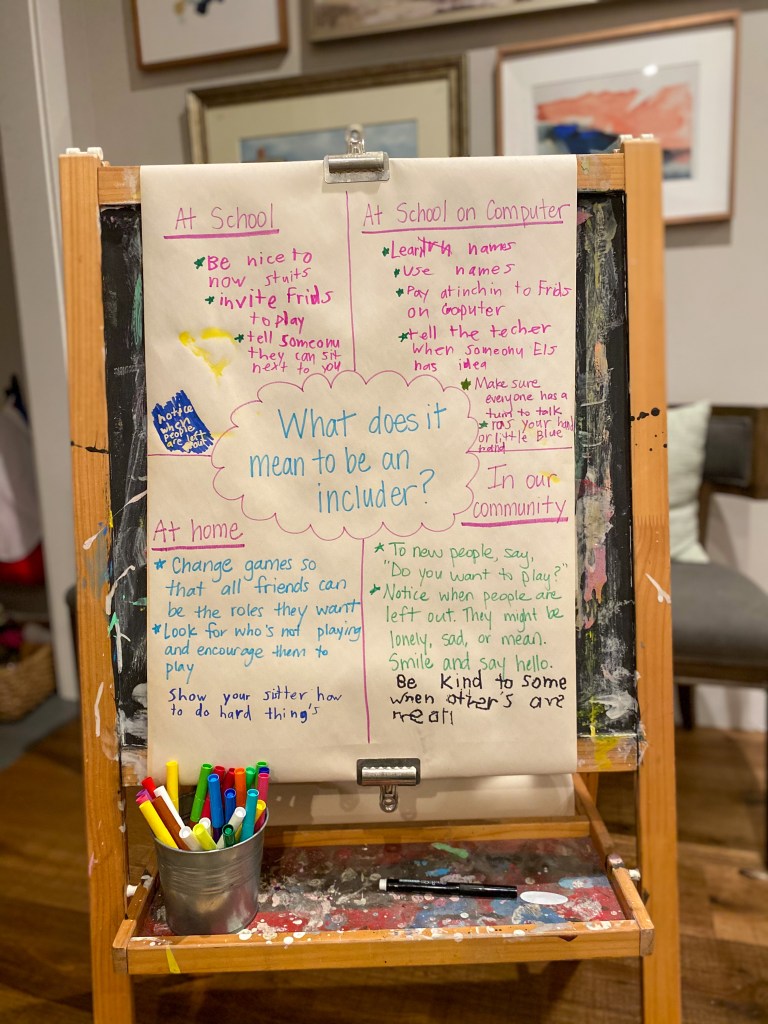 At School
Be nice to
now stuits
invite Frids
to play
tell someonu
they can sit
next to you
notice
when
people
are left
out
At School on Computer
Learn names
use names
Pay atinchin to Frids
on Coputer
tell the techer
when someonu Els
has idea
Make sure
everyone has a
turn to talk
ras your hand
or little Blue
hand
What does it
mean to be an
includer?
At home
Change games so
that all friends can
be the roles they want
Look for who's not playing
and encourage them to
play
Show your sitter how
to do hard thing's
In our
community
To new people, say,
"Do you want to play?"
Notice when people are
left out. They might be
lonely, sad, or mean.
Smile and say hello.
Be Kind to some
when other's are
mean